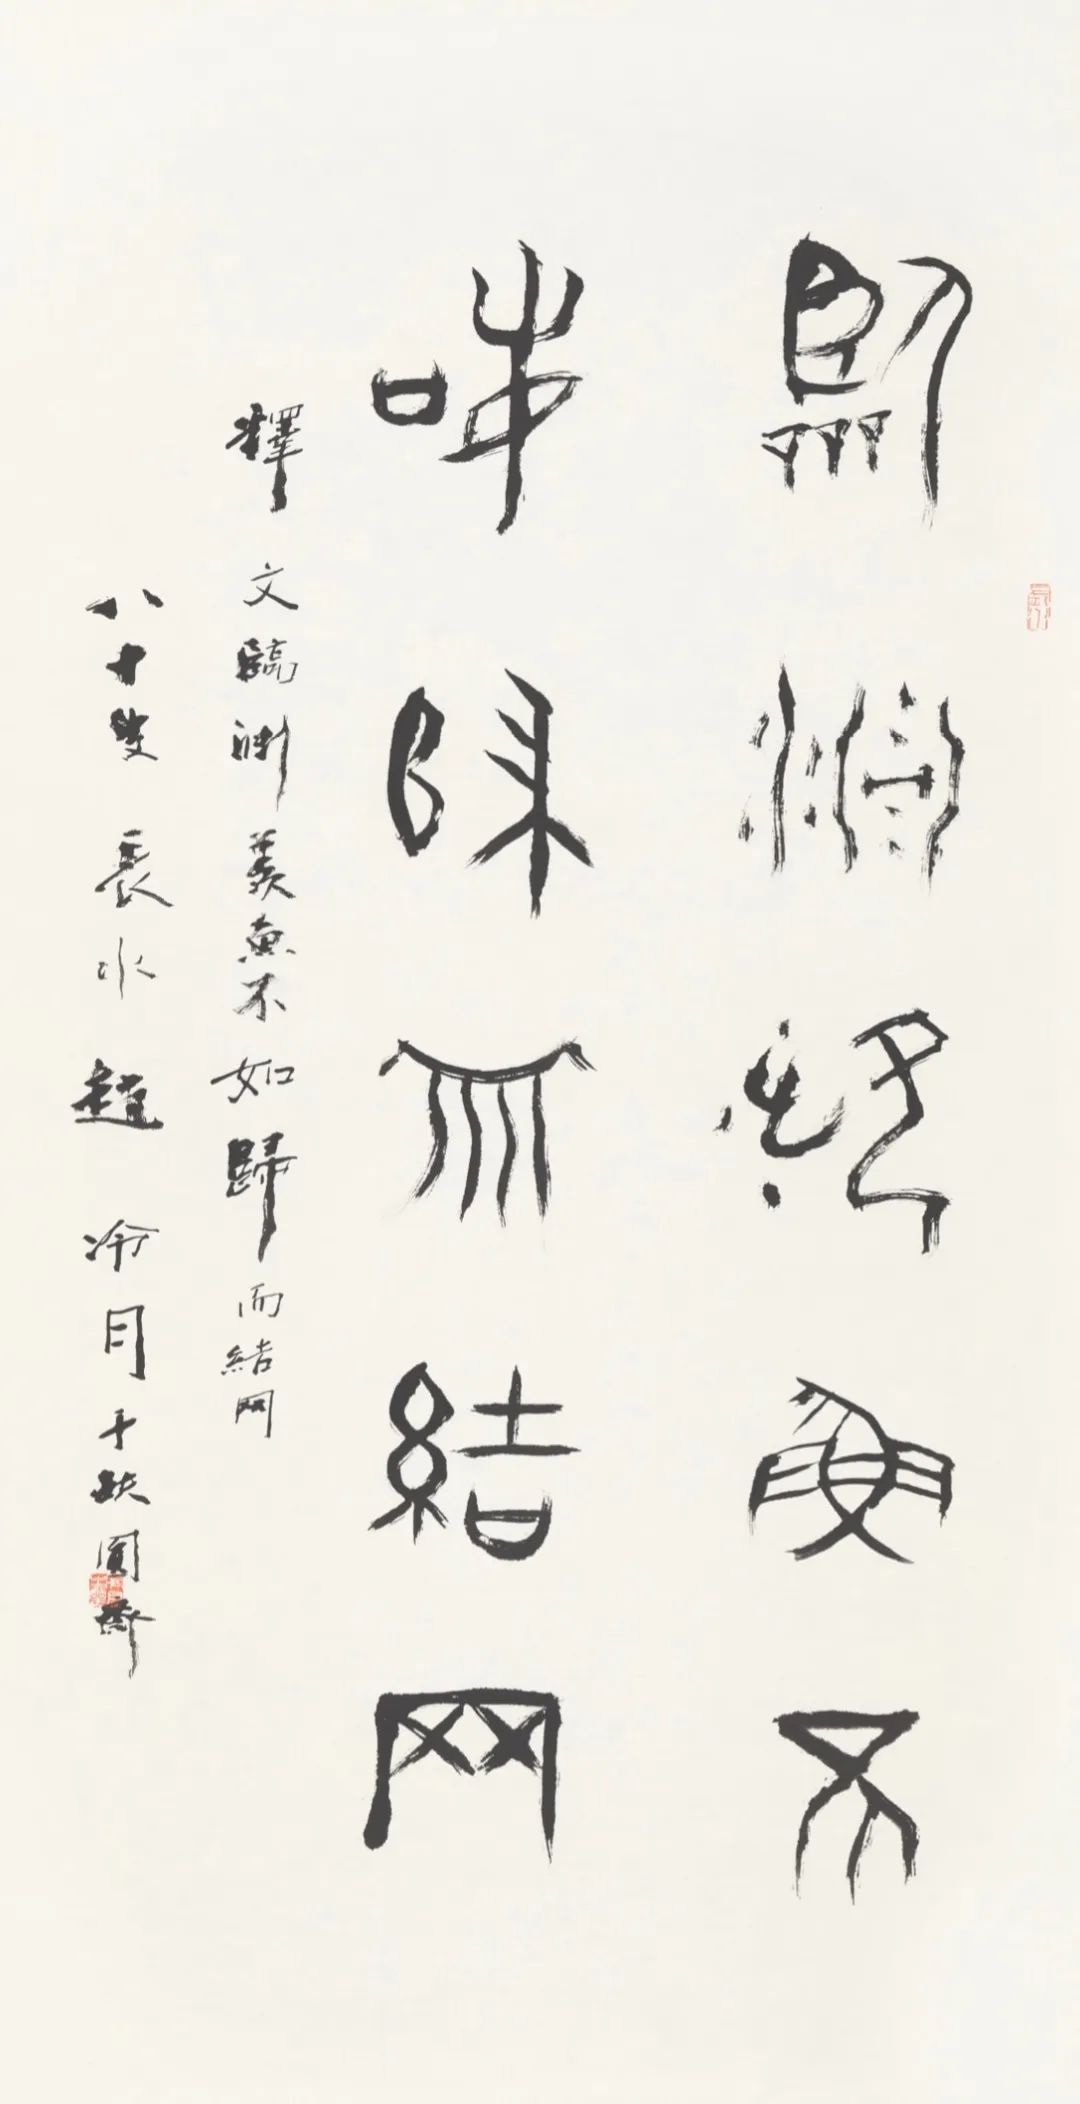 臨淵羨魚不
如歸而結网
釋文臨淵羨魚不如歸而結网
八十叟長水趙冷月于缺圓齋